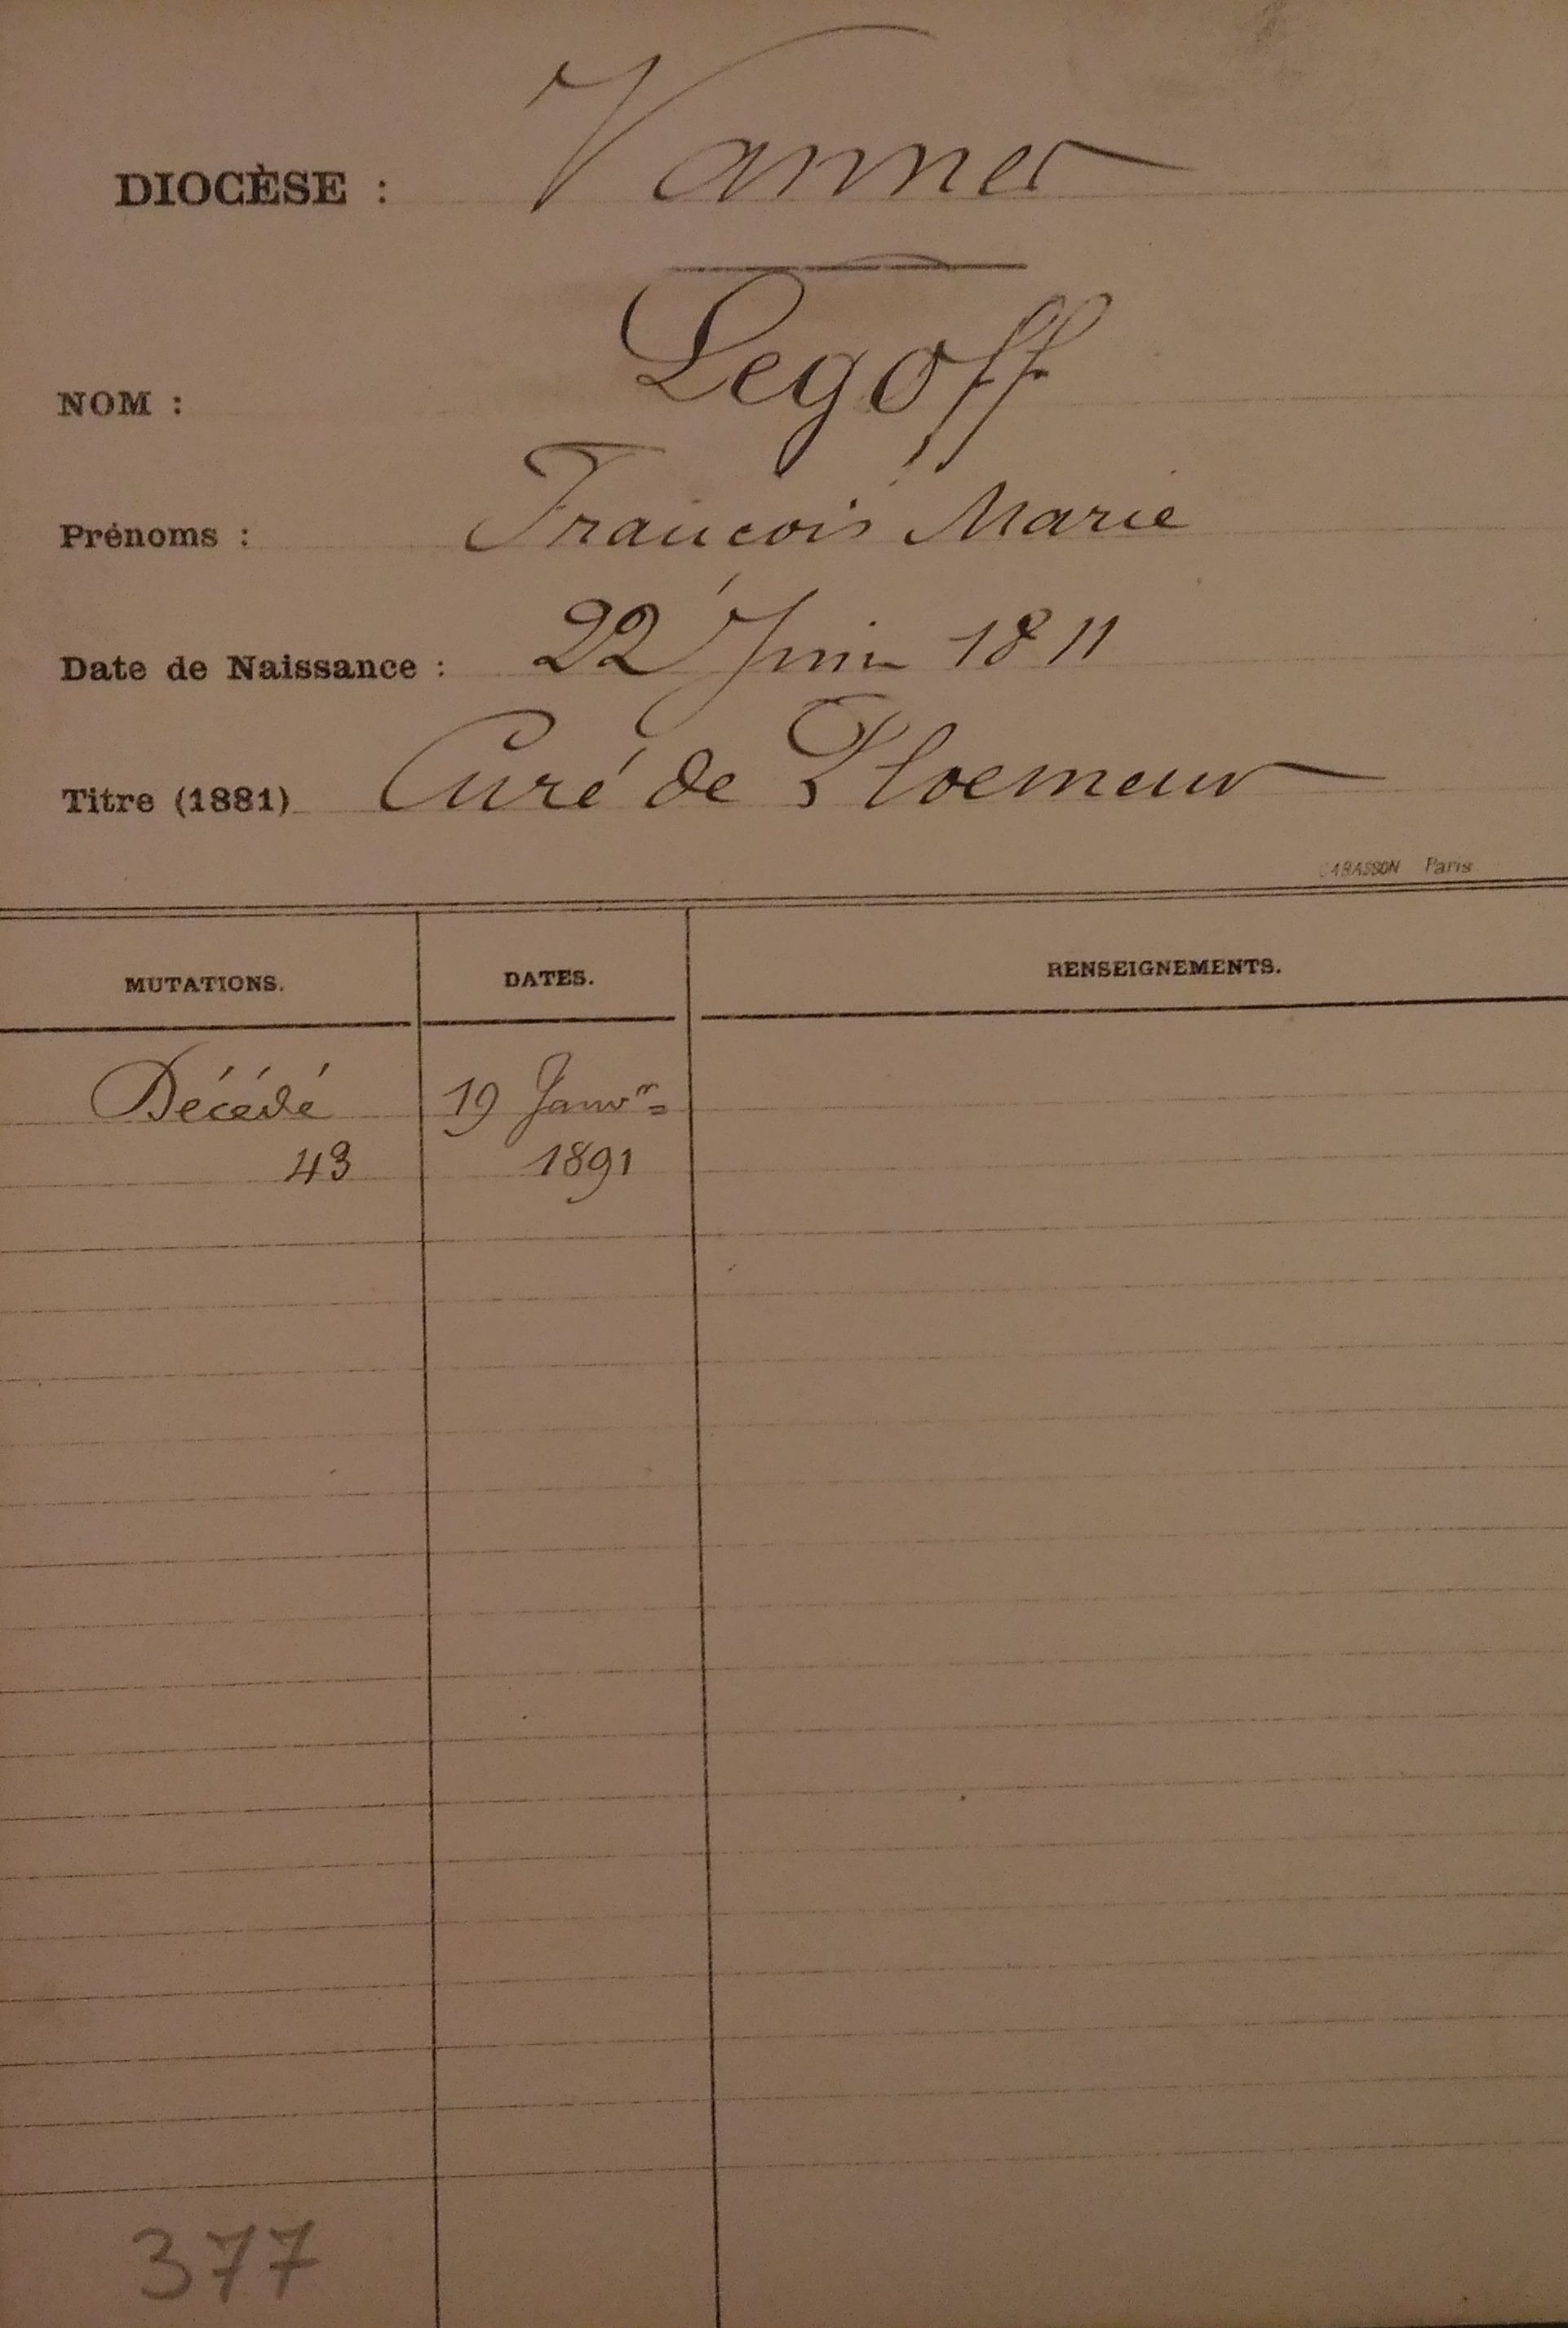 DIOCÈSE : Vannes
NOM : Legoff
Prénoms : François Marie
Date de Naissance : 22 Juin 1811
Titre (1881) Curé de Ploemeur
CABASSON Paris
MUTATIONS. DATES. RENSEIGNEMENTS.
Décédé 19 Janvr
43 1891
377